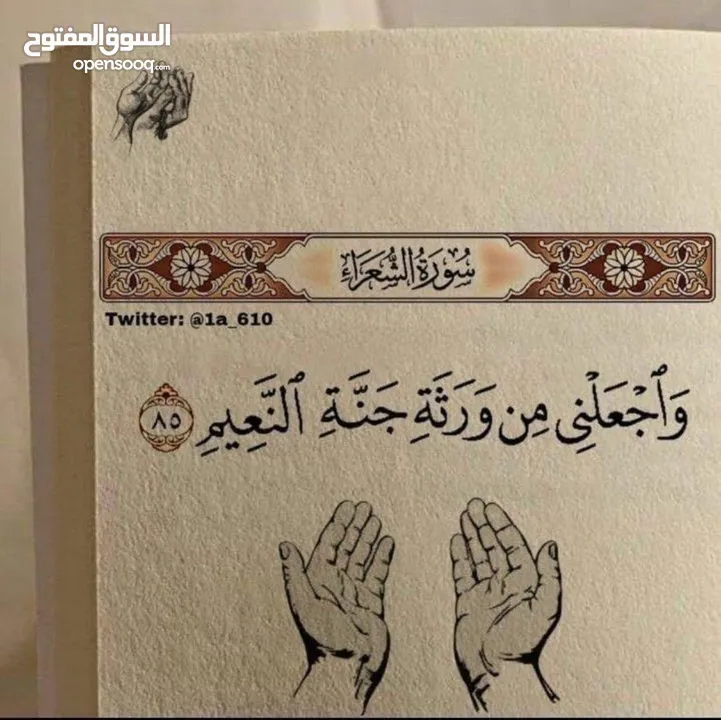 السوق المفتوح
opensooq.com
سُورَةُ الشُّعَرَاءِ
Twitter: @1a_610
وَٱجْعَلْنِى مِن وَرَثَةِ جَنَّةِ ٱلنَّعِيمِ ٨٥